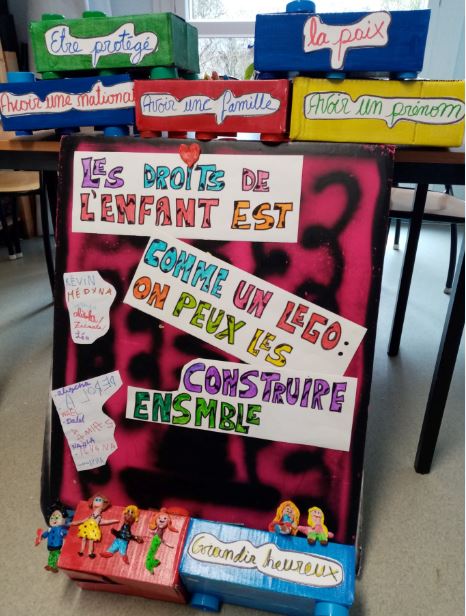 Etre protégé
la paix
Avoir une nationa
Avoir une famille
Avoir un prénom
LES DROITS DE
L'ENFANT EST
COMME UN LEGO:
ON PEUX LES
CONSTRUIRE
ENSMBLE
KEVIN
MEDYNA
Léo
Grandir heureux